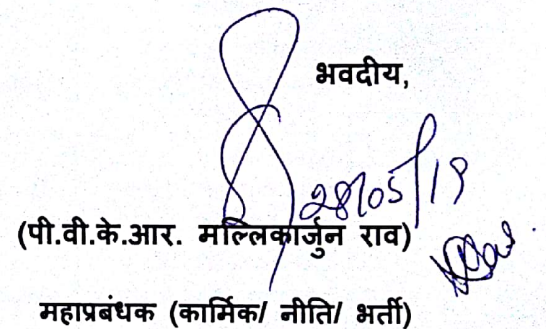 भवदीय,
28/05/19
(पी.वी.के.आर. मल्लिकार्जुन राव)
महाप्रबंधक (कार्मिक/ नीति/ भर्ती)